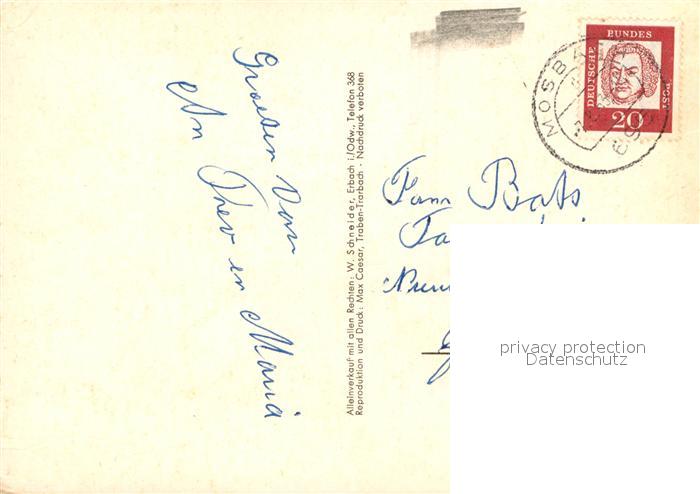 Groeten van
An Trev en Maria
Alleinverkauf mit allen Rechten: W. Schneider, Erbach i./Odw., Telefon 368
Reproduktion und Druck: Max Caesar, Traben-Trarbach - Nachdruck verboten
DEUTSCHE BUNDES POST
20
MOSBA
Fam Bats
privacy protection
Datenschutz